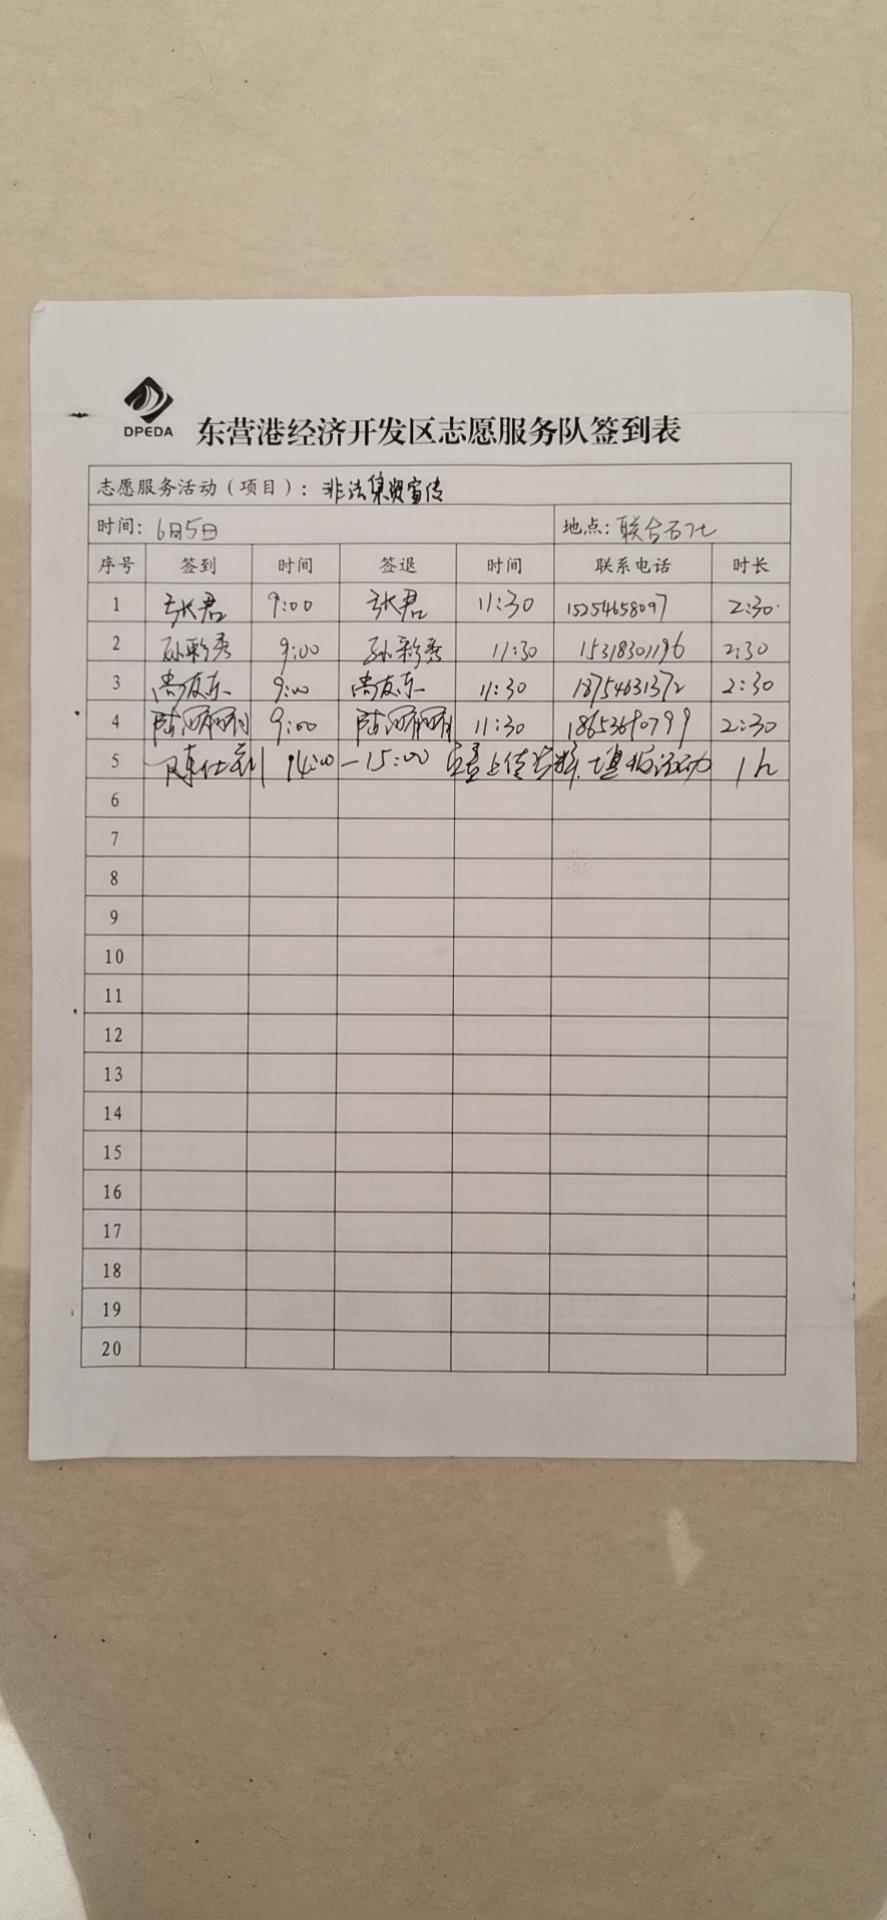 DPEDA
东营港经济开发区志愿服务队签到表
志愿服务活动（项目）：非法集资宣传
时间：6月5日 地点：联合石化
序号 签到 时间 签退 时间 联系电话 时长
1 张君 9:00 张君 11:30 15254658097 2:30
2 孙彩秀 9:00 孙彩秀 11:30 15318301196 2:30
3 9:00 11:30 18754631372 2:30
4 9:00 11:30 18653690799 2:30
5 陈仕 14:00-15:00 上传 填报活动 1h
6
7
8
9
10
11
12
13
14
15
16
17
18
19
20